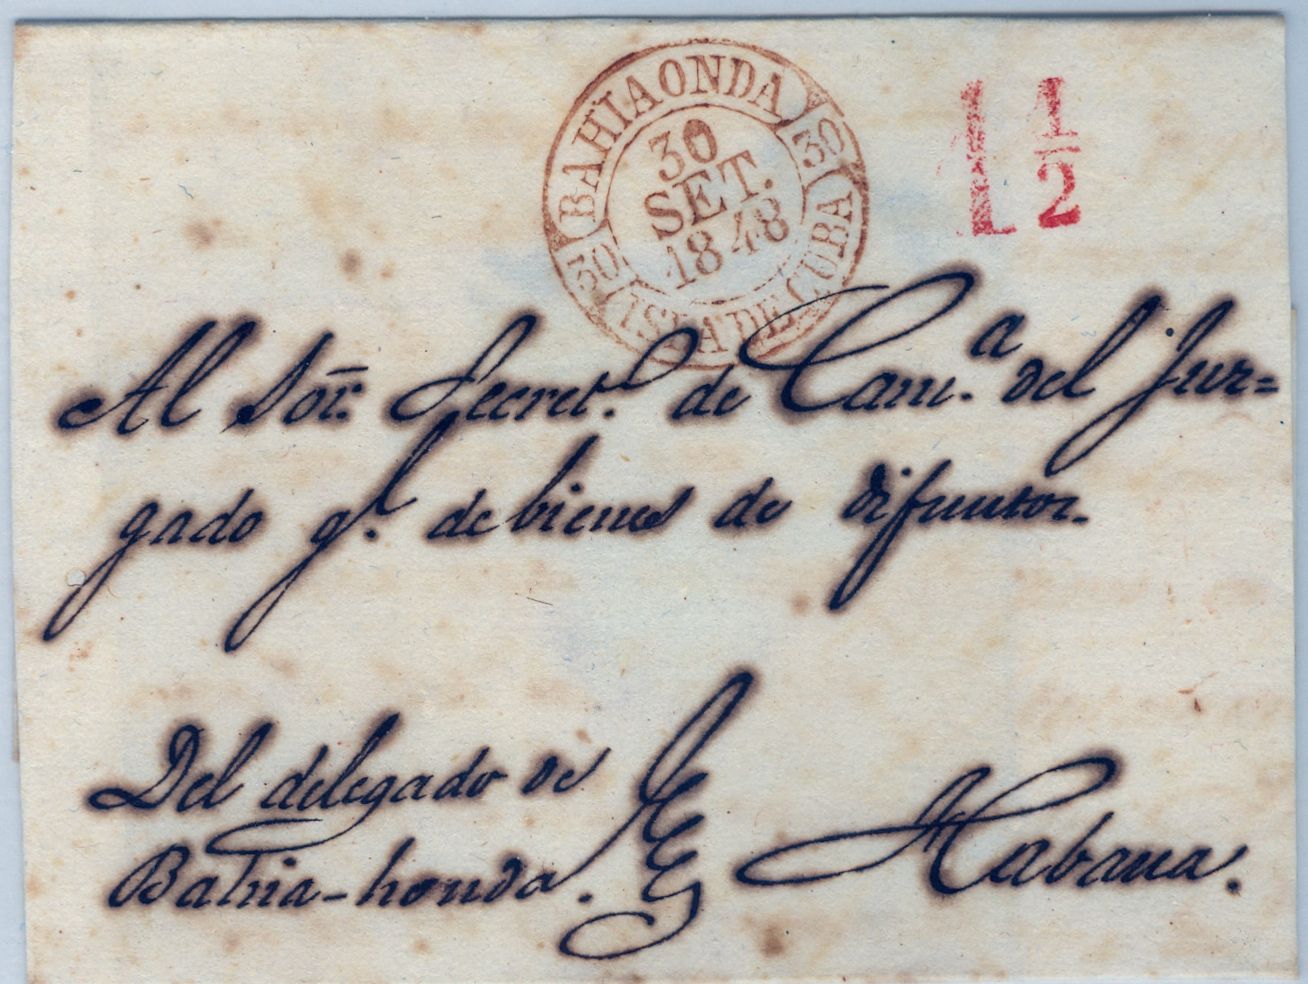 BAHIAONDA
30
SET.
1848
30
30
ISLA DE CUBA
1 1/2
Al Sor. Secret.o de Cam.a del Juz=
gado gl. de bienes de difuntos.
Del delegado de
Bahia-honda.
Habana.